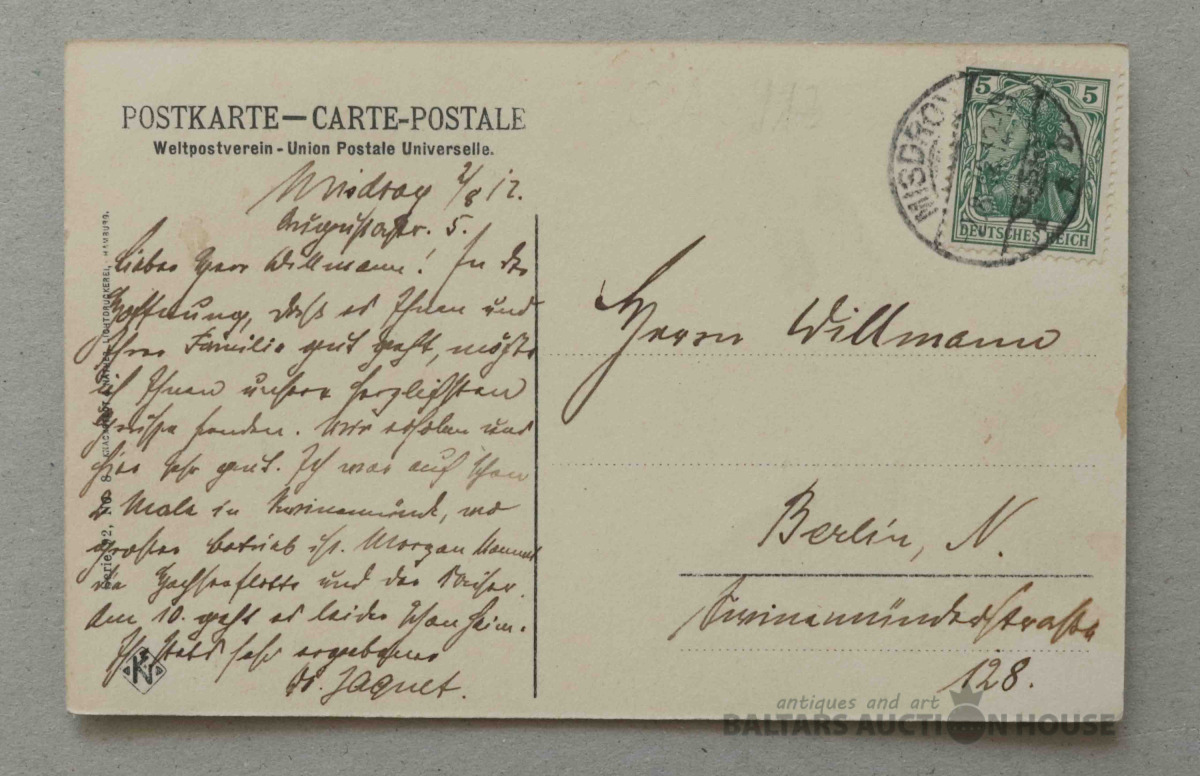 POSTKARTE — CARTE-POSTALE
Weltpostverein - Union Postale Universelle.
Misdroy 7/8 12.
Augustastr. 5.
Lieber Herr Willmann! In der
Hoffnung, daß es Ihnen und
Ihrer Familie gut geht, möchte
ich Ihnen unsere herzlichsten
Grüße senden. Wir erholen uns
hier sehr gut. Ich war auch schon
2 Male in Swinemünde, wo
großer Betrieb ist. Morgen kommt
die Hochseeflotte und der Kaiser.
Am 10. geht es leider schon heim.
Ihr stets sehr ergebener
Jaquet.
Serie 92, No. 8
LICHTDRUCKEREI, HAMBURG.
Kr
MISDROY
5 5
DEUTSCHES REICH
Herrn Willmann
Berlin, N.
Swinemünderstraße
128.
antiques and art
BALTARS AUCTION HOUSE